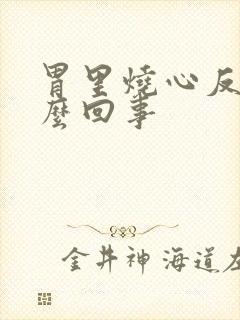 胃里燒心反
麼回事
金井神 海道左